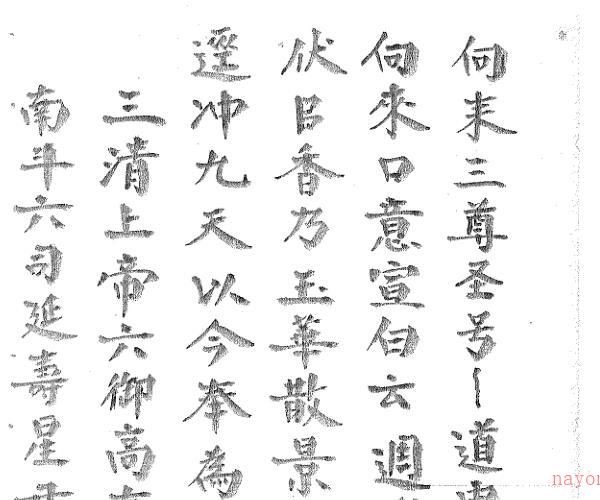 向来三尊圣号丨道
向來口意宣白云週
伏㠯香乃玉華散景
逕冲九天以今奉為
三清上帝六御高
南斗六司延壽星
nayo